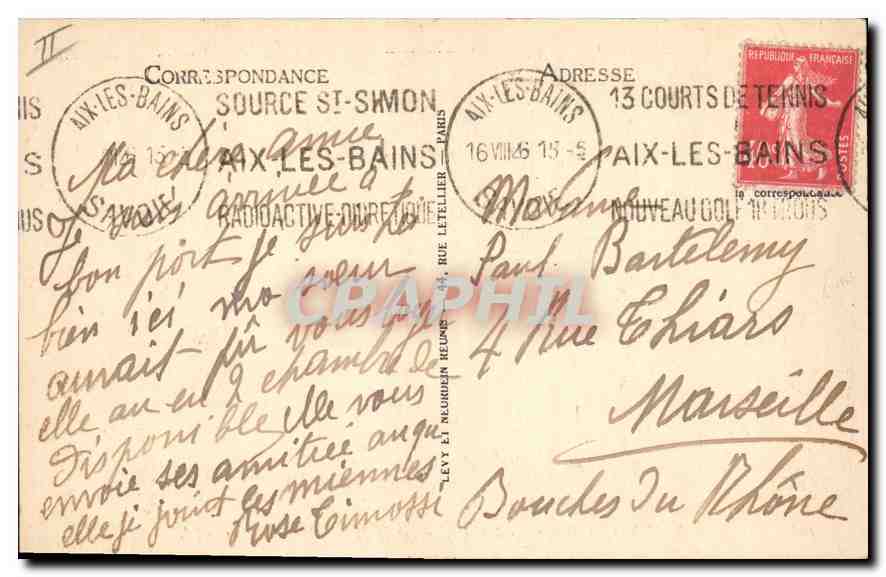 II
CORRESPONDANCE
ADRESSE
AIX-LES-BAINS
SOURCE ST-SIMON
AIX-LES-BAINS
RADIOACTIVE-DIURETIQUE
AIX-LES-BAINS
16 VIII 26 15-5
SAVOIE
13 COURTS DE TENNIS
AIX-LES-BAINS
NOUVEAU GOLF 18 TROUS
REPUBLIQUE FRANÇAISE
POSTES
correspondance
Ma chère amie
Je suis arrivée à
bon port je suis
bien ici ma soeur
aurait pû vous loger
elle au en 2 chambre de
disponible elle vous
envoie ses amitiée auqu
elle je joint les miennes
Rose Timossi
LEVY ET NEURDEIN REUNIS 44, RUE LETELLIER PARIS
Madame
Paul Bartelemy
4 Rue Thiars
Marseille
Bouches du Rhône
CPAPHIL